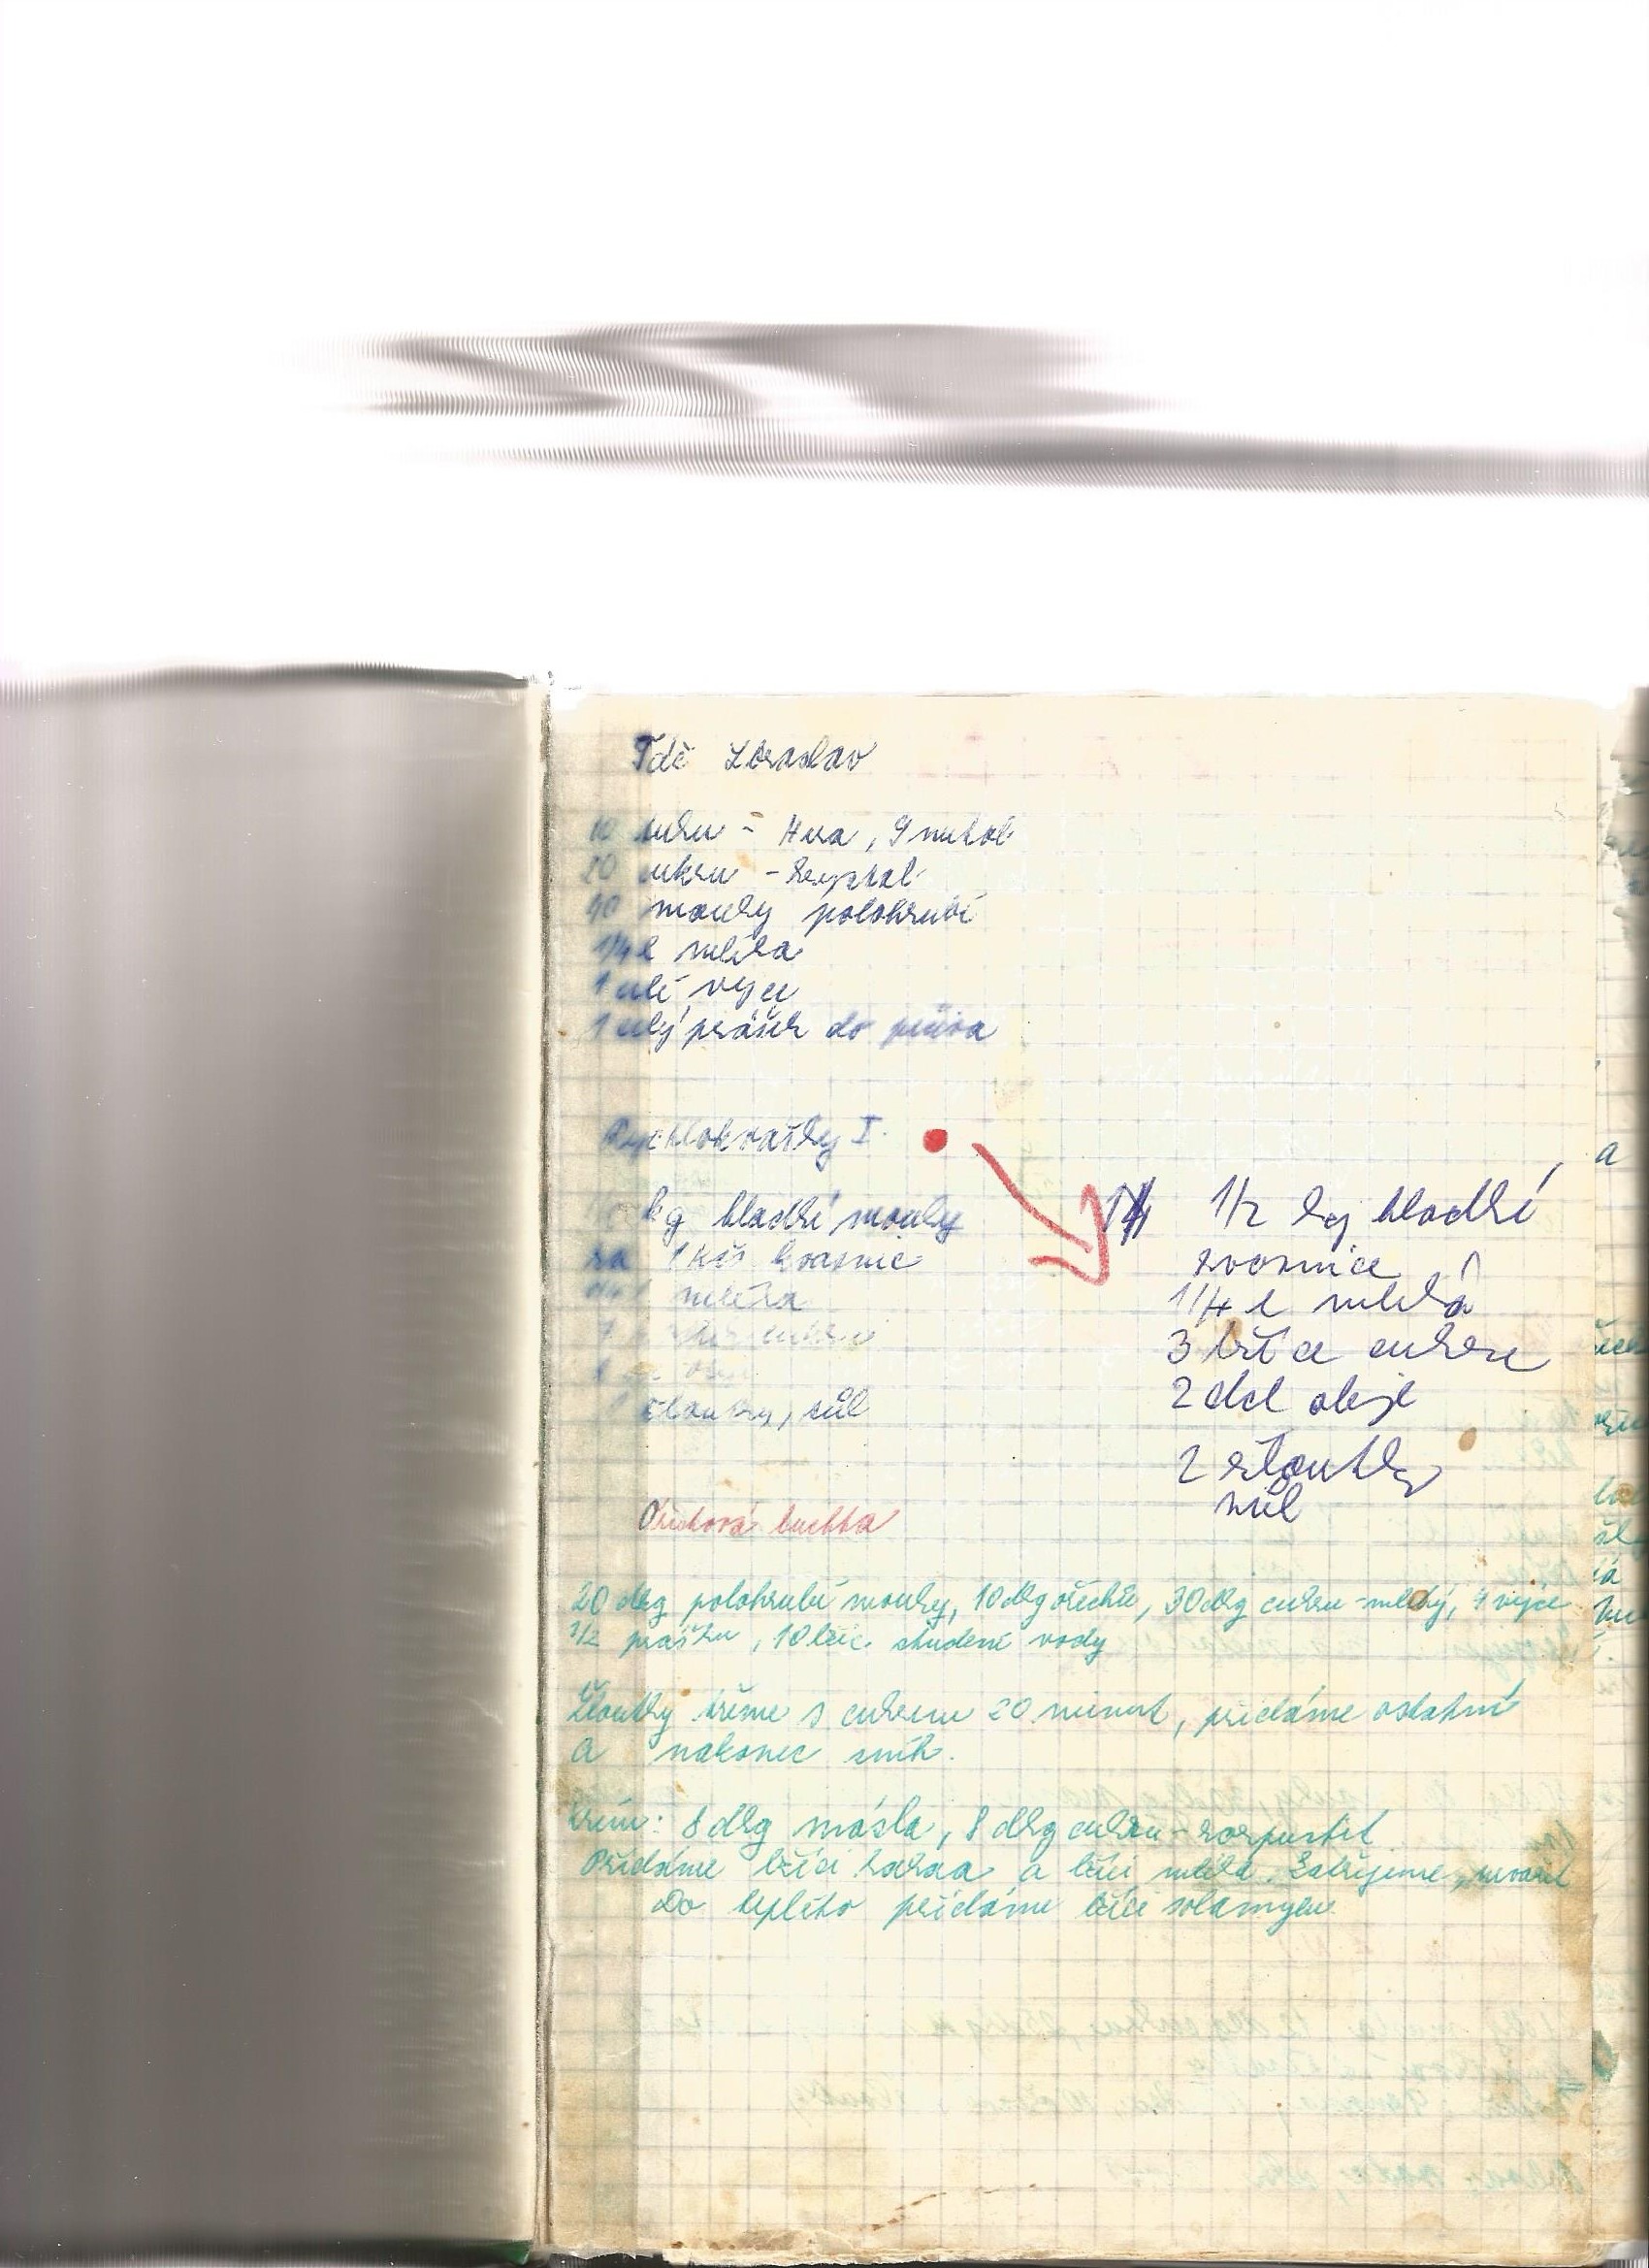 Těě Zbraslav
10 cukru - Hera, 9 nutol
20 cukru - krystal
40 mouky polohrubé
1/4 l mléka
1 celé vejce
1 celý prášek do pečiva
Rychlokvašky I.
kg hladké mouky
za 1 Kčs kvasnic
mléka
cukru
žloutky, sůl
1/2 kg hladké
kvasnice
1/4 l mléka
3 lžíce cukru
2 dcl oleje
2 žloutky
sůl
Ořechová buchta
20 dkg polohrubé mouky, 10 dkg ořechů, 30 dkg cukru - mletý, 4 vejce
1/2 prášku, 10 lžic studené vody
Žloutky třeme s cukrem 20 minut, přidáme ostatní
a nakonec sníh.
Krém: 8 dkg másla, 8 dkg cukru - rozpustit
Přidáme lžíci kakaa a lžíci mléka. Zahřejeme, nevařit
Do teplého přidáme lžíci solamylu